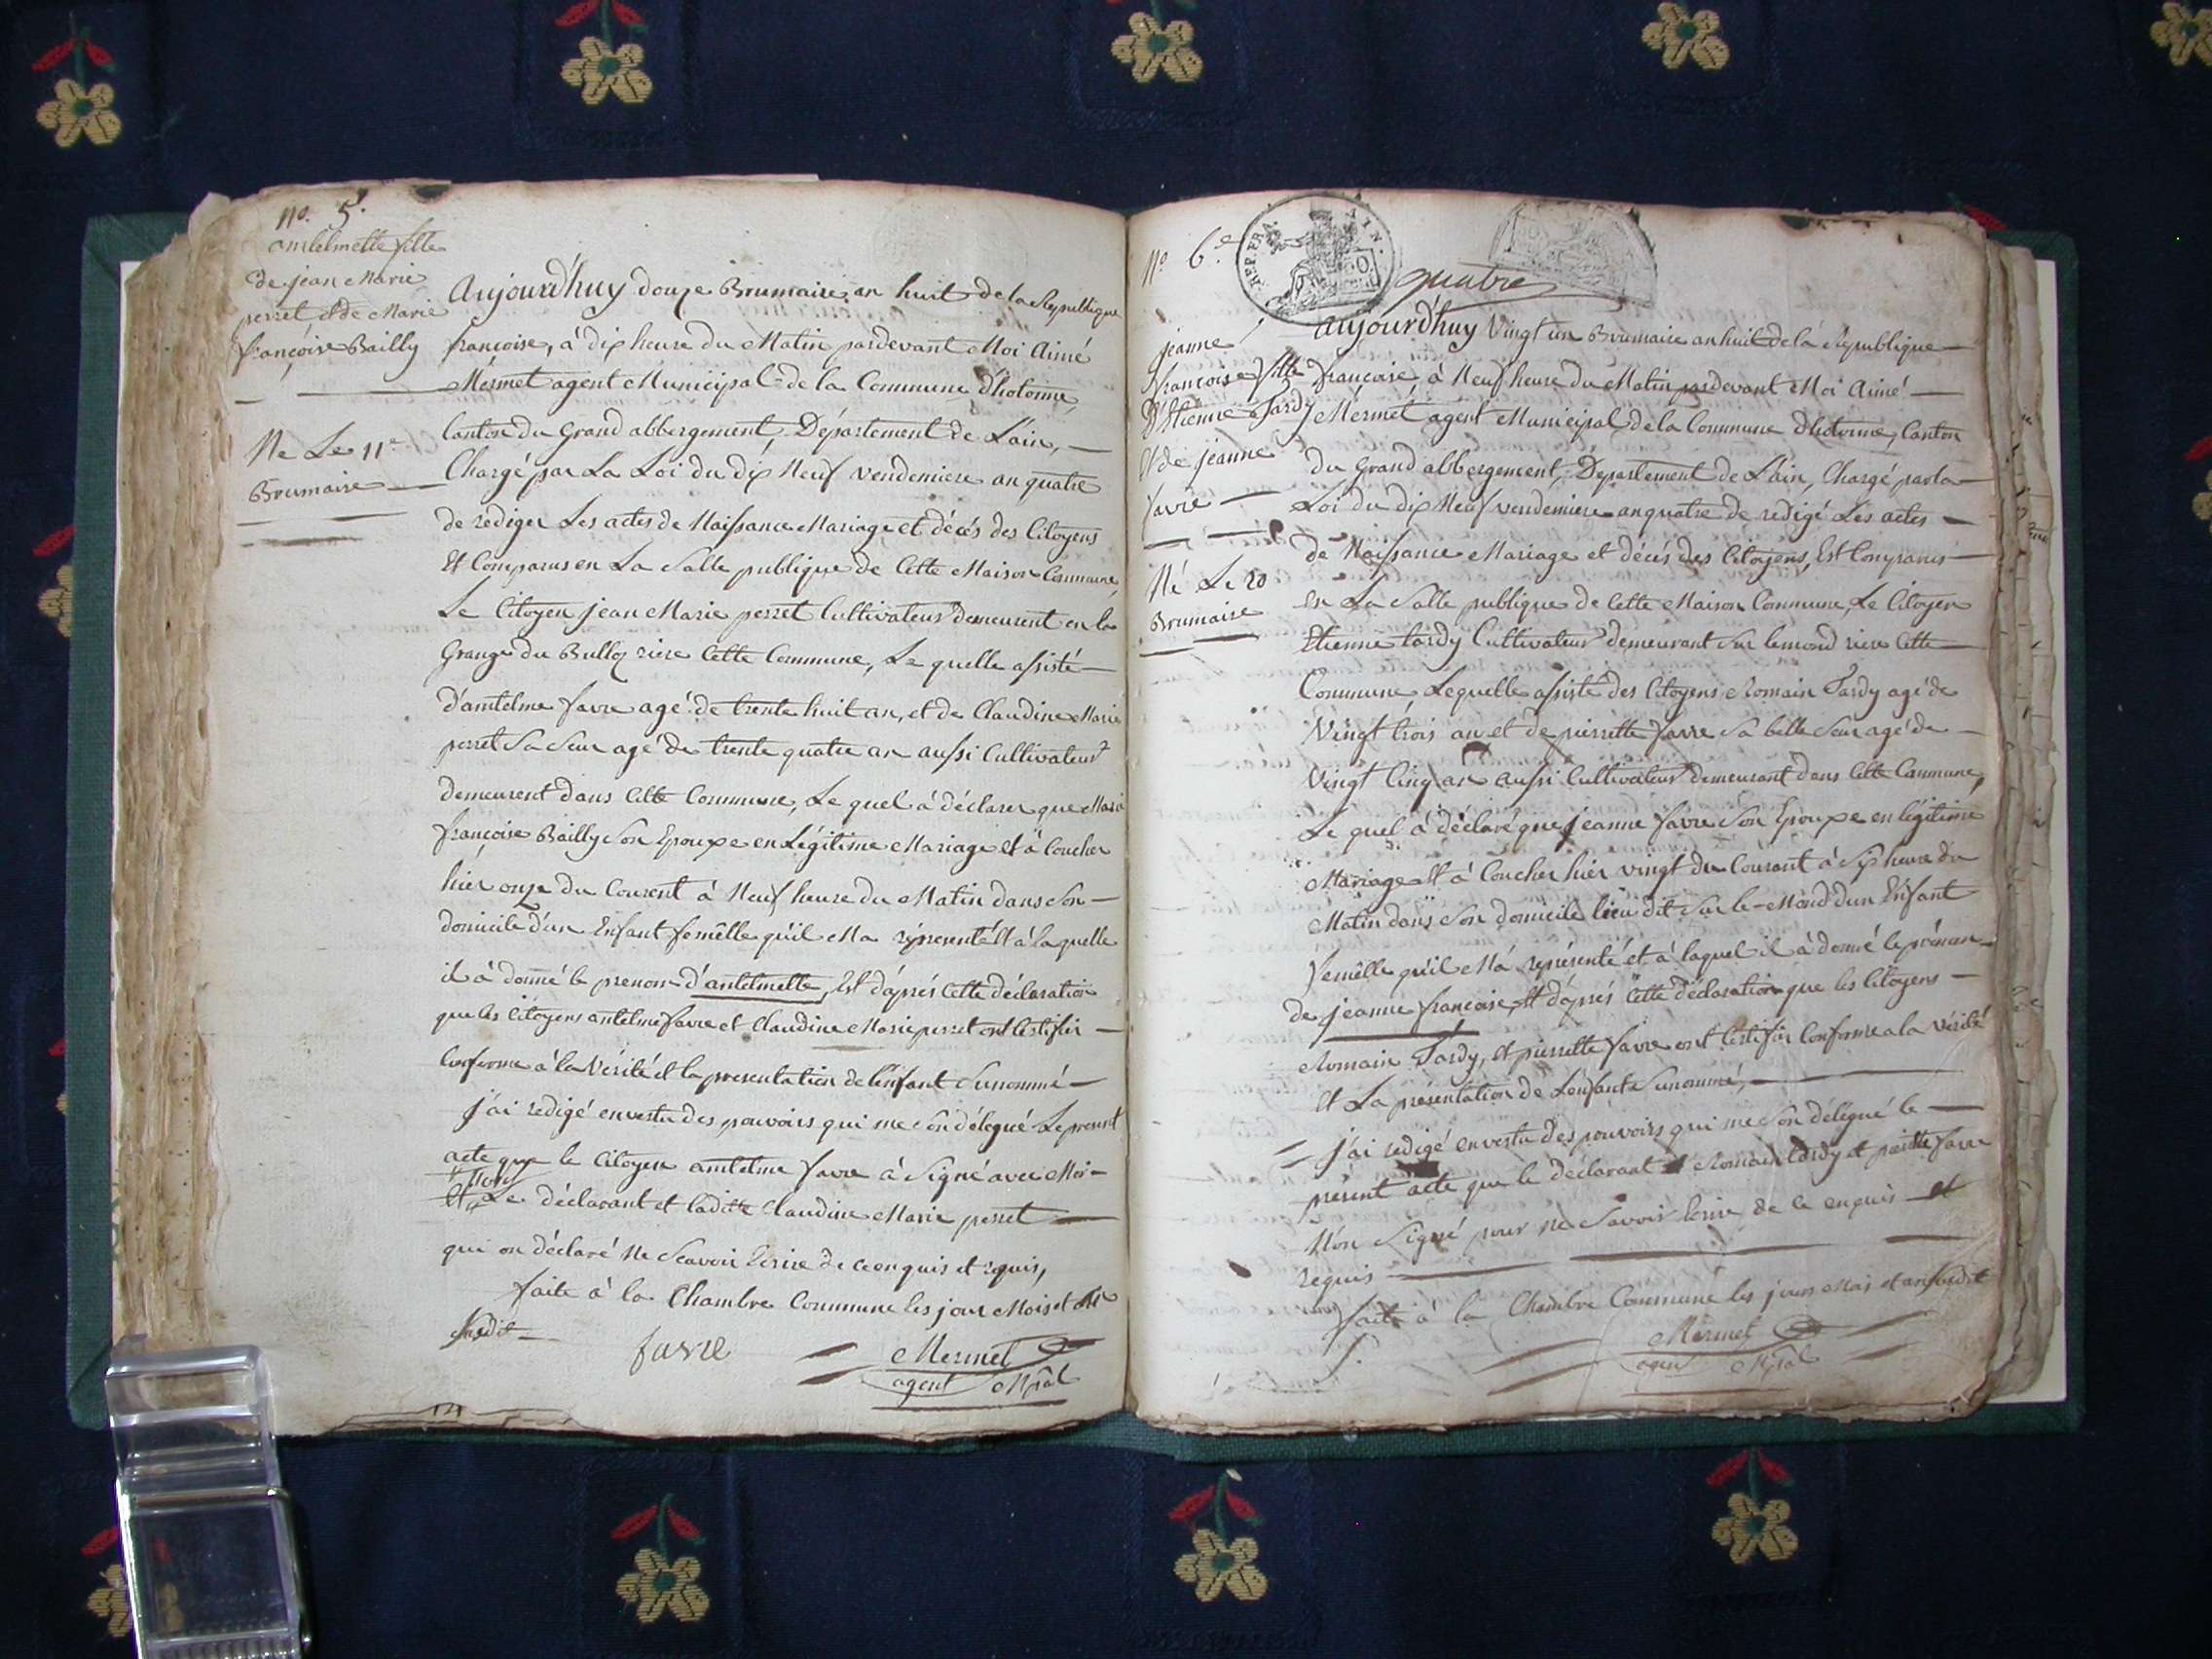 No. 5.
amtelmette fille
de jean Marie
perret et de Marie
françoise Bailly
Ne Le 11e
Brumaire
Aujourd'huy douze Brumaire an huit de la Republique
françoise, à dix heure du Matin pardevant Moi Aimé
Mérmet agent Municipal de la Commune d'hotonne,
Canton du Grand abbergement, Département de L'ain,
Chargé par La Loi du dix Neuf vendemiere an quatre
de rediger Les actes de Naissance Mariage et décés des Citoyens
Et Comparus en La Salle publique de Cette Maison Commune,
Le Citoyen jean Marie perret Cultivateur demeurent en la
Grange du Bulloz riere Cette Commune, Le quelle assisté
d'amtelme favre agé de trente huit an, et de Claudine Marie
perret Sa Seur agé de trente quatre an aussi Cultivateur
demeurent dans Cette Commune, Le quel à déclarer que Marie
françoise Bailly Son Epouxe en Légitime Mariage Et à Coucher
hier onze du Courent à Neuf heure du Matin dans Son
domicile d'un Enfant femêlle qu'il Ma réprésenté Et à laquelle
il à donné le prenom d'antelmette, Et d'aprés Cette déclaration
que les Citoyens antelme favre et Claudine Marie perret ont Certifier
Conforme à la Vérité et la presentation de l'enfant Sunommé
j'ai redigé en vertu des pouvoirs qui me Son délegué Le present
acte que le Citoyen amtelme favre à Signé avec Moi
Et Non Le déclarant et laditte Claudine Marie perret
qui on déclaré Ne Scavoir Ecrire de ce enquis et requis,
faite à la Chambre Commune les jour Mois et an
Susdit
favre
Mermet
agent Mpâl
No 6.e
REP. FRA. AIN.
quatre
jeanne
françoise fille
D'Etienne Tardy
Et de jeanne
favre
Né Le 20
Brumaire
Aujourd'huy Vingt un Brumaire an huit de la Republique
françoise, à Neuf heure du Matin pardevant Moi Aimé
Mermet agent Municipal de la Commune d'hotonne, Canton
du Grand abbergement, Departement de L'ain, Chargé par la
Loi du dix Neuf vendemiere an quatre de redigé Les actes
de Naissance Mariage et décés des Citoyens, Est Comparus
en La Salle publique de Cette Maison Commune, Le Citoyen
Etienne tardy Cultivateur demeurant Sur lemond riere Cette
Commune, Lequelle assisté des Citoyens Romain Tardy agé de
Vingt trois an et de pierrette favre Sa belle Seur agé de
Vingt Cinq an aussi Cultivateur demeurant dans Cette Commune,
Le quel à déclaré que jeanne favre Son Epouxe en légitime
Mariage Et à Coucher hier vingt du Courant à Six heure du
Matin dans Son domicile lieu dit Sur le Mond d'un Enfant
femêlle qu'il M'á représenté et à laquel il à donné le prénom
de jeanne françoise, Et d'aprés Cette déclaration que les Citoyens
Romain Tardy, Et pierrette favre ont Certifier Conforme a la Vérité
Et La présentation de L'enfant Sunommé,
j'ai redigé en vertu des pouvoirs qui me Son délegué le
présent acte que le déclarant Romain tardy et pierrette favre
N'on Signé pour ne Savoir Ecrire de ce enquis et
requis
faite à la Chambre Commune les jours Mois et an Susdit
Mermet
agent Mpâl